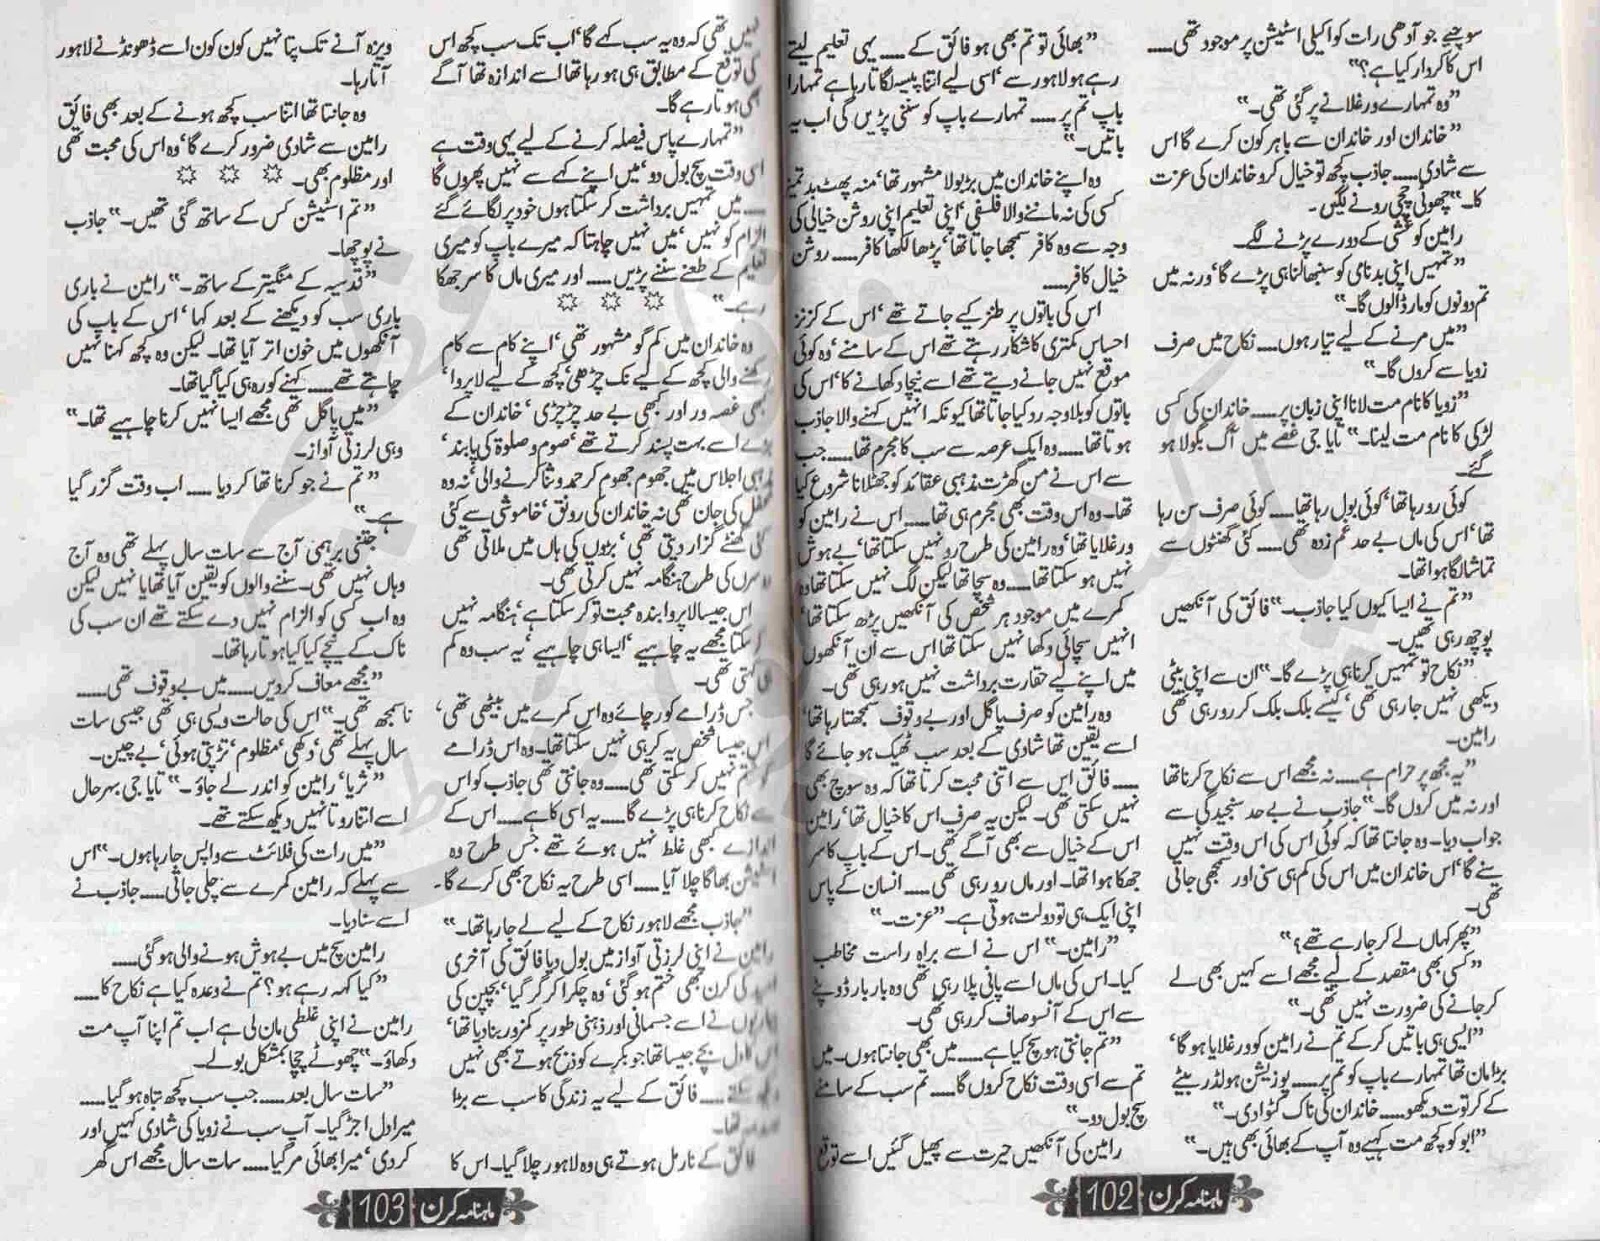 سوچیے جو آدھی رات کو اکیلی اسٹیشن پر موجود تھی.....
اس کا کردار کیا ہے؟"
"وہ تمہارے ورغلانے پر گئی تھی۔"
"خاندان اور خاندان سے باہر کون کرے گا اس
سے شادی..... جاذب کچھ تو خیال کرو خاندان کی عزت
کا۔" چھوٹی چچی رونے لگیں۔
رامین کو غشی کے دورے پڑنے لگے۔
"تمہیں اپنی بدنامی کو سنبھالنا ہی پڑے گا' ورنہ میں
تم دونوں کو مار ڈالوں گا۔"
"میں مرنے کے لیے تیار ہوں..... نکاح میں صرف
زویا سے کروں گا۔"
"زویا کا نام مت لانا اپنی زبان پر..... خاندان کی کسی
لڑکی کا نام مت لینا۔" تایا جی غصے میں آگ بگولا ہو
گئے۔
کوئی رو رہا تھا' کوئی بول رہا تھا..... کوئی صرف سن رہا
تھا' اس کی ماں بے حد غم زدہ تھی..... کئی گھنٹوں سے
تماشا لگا ہوا تھا۔
"تم نے ایسا کیوں کیا جاذب۔" فائق کی آنکھیں
پوچھ رہی تھیں۔
"نکاح تو تمہیں کرنا ہی پڑے گا۔" ان سے اپنی بیٹی
دیکھی نہیں جا رہی تھی' کیسے بلک بلک کر رو رہی تھی
رامین۔
"یہ مجھ پر حرام ہے..... نہ مجھے اس سے نکاح کرنا تھا
اور نہ میں کروں گا۔" جاذب نے بے حد سنجیدگی سے
جواب دیا۔ وہ جانتا تھا کہ کوئی اس کی اس وقت نہیں
سنے گا' اس خاندان میں اس کی کم ہی سنی اور سمجھی جاتی
تھی۔
"پھر کہاں لے کر جا رہے تھے؟"
"کسی بھی مقصد کے لیے مجھے اسے کہیں بھی لے
کر جانے کی ضرورت نہیں تھی۔"
"ایسی ہی باتیں کر کے تم نے رامین کو ورغلایا ہو گا'
بڑا مان تھا تمہارے باپ کو تم پر..... پوزیشن ہولڈر بیٹے
کے کرتوت دیکھو..... خاندان کی ناک کٹوا دی۔"
"ابو کو کچھ مت کہیے وہ آپ کے بھائی بھی ہیں۔"
"بھائی تو تم بھی ہو فائق کے..... یہی تعلیم لیتے
رہے ہو لاہور سے' اسی لیے اتنا پیسہ لگاتا رہا ہے تمہارا
باپ تم پر..... تمہارے باپ کو سننی پڑیں گی اب یہ
باتیں۔"
وہ اپنے خاندان میں بڑبولا مشہور تھا' منہ پھٹ بدتمیز
کسی کی نہ ماننے والا فلسفی' اپنی تعلیم اپنی روشن خیالی کی
وجہ سے وہ کافر سمجھا جاتا تھا' پڑھا لکھا کافر..... روشن
خیال کافر.....
اس کی باتوں پر طنز کیے جاتے تھے' اس کے کزنز
احساس کمتری کا شکار رہتے تھے اس کے سامنے' وہ کوئی
موقع نہیں جانے دیتے تھے اسے نیچا دکھانے کا' اس کی
باتوں کو بلاوجہ رد کیا جاتا تھا کیونکہ انہیں کہنے والا جاذب
ہوتا تھا..... وہ ایک عرصہ سے سب کا مجرم تھا..... جب
سے اس نے من گھڑت مذہبی عقائد کو جھٹلانا شروع کیا
تھا۔ وہ اس وقت بھی مجرم ہی تھا..... اس نے رامین کو
ورغلایا تھا' وہ رامین کی طرح رو نہیں سکتا تھا' بے ہوش
نہیں ہو سکتا تھا..... وہ سچا تھا لیکن لگ نہیں سکتا تھا' وہ
کمرے میں موجود ہر شخص کی آنکھیں پڑھ سکتا تھا'
انہیں سچائی دکھا نہیں سکتا تھا اس سے ان آنکھوں
میں اپنے لیے حقارت برداشت نہیں ہو رہی تھی۔
وہ رامین کو صرف پاگل اور بے وقوف سمجھتا رہا تھا'
اسے یقین تھا شادی کے بعد سب ٹھیک ہو جائے گا
..... فائق اس سے اتنی محبت کرتا تھا کہ وہ سوچ بھی
نہیں سکتی تھی۔ لیکن یہ صرف اس کا خیال تھا' رامین
اس کے خیال سے بھی آگے تھی۔ اس کے باپ کا سر
جھکا ہوا تھا۔ اور ماں رو رہی تھی..... انسان کے پاس
اپنی ایک ہی تو دولت ہوتی ہے۔ "عزت۔"
"رامین۔" اس نے اسے براہ راست مخاطب
کیا۔ اس کی ماں اسے پانی پلا رہی تھی وہ بار بار ڈوپٹے
سے اس کے آنسو صاف کر رہی تھی۔
"تم جانتی ہو سچ کیا ہے..... میں بھی جانتا ہوں۔ میں
تم سے اسی وقت نکاح کروں گا..... تم سب کے سامنے
سچ بول دو۔"
رامین کی آنکھیں حیرت سے پھیل گئیں اسے توقع
ماہنامہ کرن 102
نہیں تھی کہ وہ یہ سب کہے گا' اب تک سب کچھ اس
کی توقع کے مطابق ہی ہو رہا تھا اسے اندازہ تھا آگے
بھی ہوتا رہے گا۔
"تمہارے پاس فیصلہ کرنے کے لیے یہی وقت ہے
اسی وقت سچ بول دو' میں اپنے کہے سے نہیں پھروں گا
..... میں تمہیں برداشت کر سکتا ہوں خود پر لگائے گئے
الزام کو نہیں' میں نہیں چاہتا کہ میرے باپ کو میری
تعلیم کے طعنے سننے پڑیں..... اور میری ماں کا سر جھکا
رہے۔"
وہ خاندان میں کم گو مشہور تھی' اپنے کام سے کام
رکھنے والی کچھ کے لیے نک چڑھی' کچھ کے لیے لاپروا'
کبھی غصہ ور اور کبھی بے حد چڑچڑی' خاندان کے
بڑے اسے بہت پسند کرتے تھے' صوم و صلوٰۃ کی پابند'
مذہبی اجلاس میں جھوم جھوم کر حمد و ثنا کرنے والی' نہ وہ
محفل کی جان تھی نہ خاندان کی رونق' خاموشی سے کئی
کئی گھنٹے گزار دیتی تھی' بڑوں کی ہاں میں ملاتی تھی
دوسروں کی طرح ہنگامہ نہیں کرتی تھی۔
اس جیسا لاپروا بندہ محبت تو کر سکتا ہے' ہنگامہ نہیں
کر سکتا مجھے یہ چاہیے' ایسا ہی چاہیے' یہ سب وہ کم
ہی کہتی تھی۔
جس ڈرامے کو رچائے وہ اس کمرے میں بیٹھی تھی'
اس جیسا شخص یہ کر ہی نہیں سکتا تھا۔ وہ اس ڈرامے
کو ختم نہیں کر سکتی تھی..... وہ جانتی تھی جاذب کو اس
سے نکاح کرنا ہی پڑے گا..... یہ اسی کا ہے..... اس کے
اندازے کبھی غلط نہیں ہوئے تھے جس طرح وہ
اسٹیشن بھاگا چلا آیا..... اسی طرح یہ نکاح بھی کرے گا۔
"جاذب مجھے لاہور نکاح کے لیے لے جا رہا تھا۔"
رامین نے اپنی لرزتی آواز میں بول دیا فائق کی آخری
امید کی کرن بھی ختم ہو گئی' وہ چکرا کر گر گیا' بچپن کی
بیماریوں نے اسے جسمانی اور ذہنی طور پر کمزور بنا دیا تھا'
اس کا دل بچے جیسا تھا جو بکرے کو ذبح ہوتے بھی نہیں
دیکھ سکتے..... فائق کے لیے یہ زندگی کا سب سے بڑا
صدمہ تھا۔
فائق کے نارمل ہوتے ہی وہ لاہور چلا گیا۔ اس کا
ویزہ آنے تک پتا نہیں کون کون اسے ڈھونڈنے لاہور
آتا رہا۔
وہ جانتا تھا اتنا سب کچھ ہونے کے بعد بھی فائق
رامین سے شادی ضرور کرے گا' وہ اس کی محبت تھی
اور مظلوم بھی۔
"تم اسٹیشن کس کے ساتھ گئی تھیں۔" جاذب
نے پوچھا۔
"قدسیہ کے منگیتر کے ساتھ۔" رامین نے باری
باری سب کو دیکھنے کے بعد کہا' اس کے باپ کی
آنکھوں میں خون اتر آیا تھا۔ لیکن وہ کچھ کہنا نہیں
چاہتے تھے..... کہنے کو رہ ہی کیا گیا تھا۔
"میں پاگل تھی مجھے ایسا نہیں کرنا چاہیے تھا۔"
وہی لرزتی آواز۔
"تم نے جو کرنا تھا کر دیا..... اب وقت گزر گیا
ہے۔"
جتنی برہمی آج سے سات سال پہلے تھی وہ آج
وہاں نہیں تھی۔ سننے والوں کو یقین آیا تھا یا نہیں لیکن
وہ اب کسی کو الزام نہیں دے سکتے تھے ان سب کی
ناک کے نیچے کیا کیا ہوتا رہا تھا۔
"مجھے معاف کر دیں..... میں بے وقوف تھی.....
ناسمجھ تھی۔" اس کی حالت ویسی ہی تھی جیسی سات
سال پہلے تھی' دکھی' مظلوم' تڑپتی ہوئی' بے چین۔
"ثریا' رامین کو اندر لے جاؤ۔" تایا جی بہرحال
اسے اتنا روتا نہیں دیکھ سکتے تھے۔
"میں رات کی فلائٹ سے واپس جا رہا ہوں۔" اس
سے پہلے کہ رامین کمرے سے چلی جاتی..... جاذب نے
اسے سنا دیا۔
رامین سچ میں بے ہوش ہونے والی ہو گئی.....
"کیا کہہ رہے ہو؟ تم نے وعدہ کیا ہے نکاح کا.....
رامین نے اپنی غلطی مان لی ہے اب تم اپنا آپ مت
دکھاؤ۔" چھوٹے چچا بمشکل بولے۔
"سات سال بعد..... جب سب کچھ تباہ ہو گیا.....
میرا دل اجڑ گیا۔ آپ سب نے زویا کی شادی کہیں اور
کر دی' میرا بھائی مر گیا..... سات سال مجھے اس گھر
ماہنامہ کرن 103